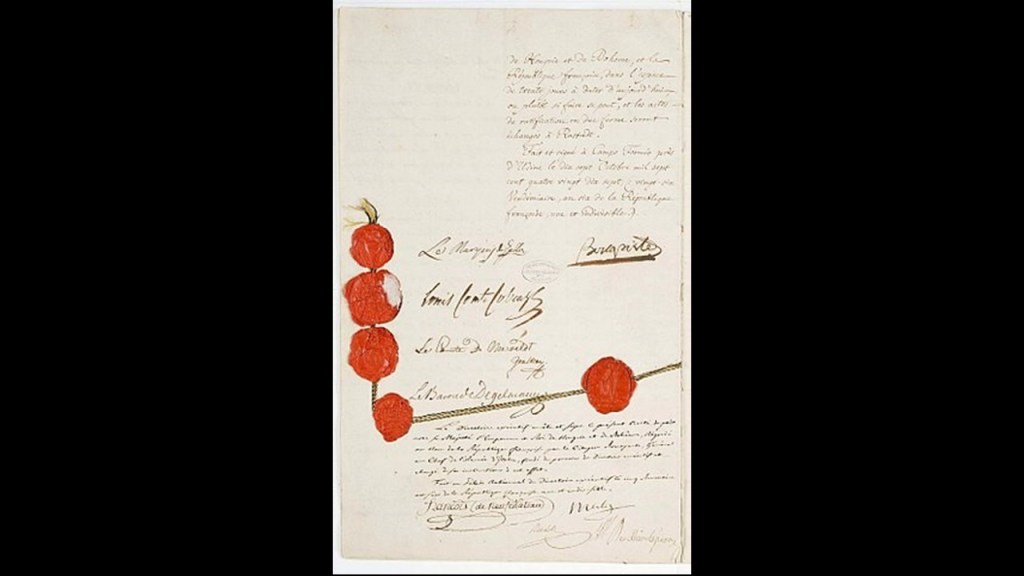 de Hongrie et de Bohême, et la
République française, dans l'espace
de trente jours à dater d'aujourd'hui
ou plutôt si faire se peut, et les actes
de ratification en due forme seront
échangés à Rastadt.
Fait et signé à Campo Formio près
d'Udine le dix sept Octobre mil sept
cent quatre vingt dix sept, (vingt-six
Vendémiaire, an six de la République
française, une et indivisible.)
Le Marquis de Gallo
Bonaparte
Louis Comte Cobenzl
Le Comte de Merveldt
Le Baron de Degelmann
Le Directoire exécutif arrête et signe le présent traité de paix
avec Sa Majesté l'Empereur et Roi de Hongrie et de Bohême, négocié
au nom de la République française par le Citoyen Bonaparte, Général
en Chef de l'armée d'Italie, fondé de pouvoirs du Directoire exécutif et
chargé de ses instructions à cet effet.
Fait au Palais National du Directoire exécutif le cinq
an six de la République française une et indivisible.
François (de Neufchâteau)
Merlin